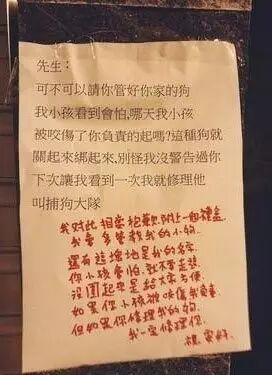 先生：
可不可以請你管好你家的狗
我小孩看到會怕,哪天我小孩
被咬傷了你負責的起嗎?這種狗就
關起來綁起來,別怪我沒警告過你
下次讓我看到一次我就修理他
叫捕狗大隊
我對此相當抱歉附上一個禮盒
我會多管教我的小狗
還有這塊地是我的名字
你小孩會怕,就不要走裝
沒圍起來是給大家方便
如果你小孩被咬傷我負責
但如果你修理我的狗
我一定修理你
祝 安好